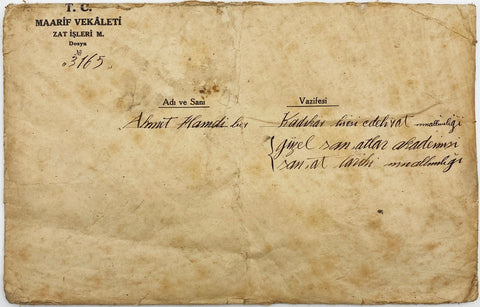 T. C.
MAARİF VEKÂLETİ
ZAT İŞLERİ M.
Dosya
№
3165
Adı ve Sanı
Vazifesi
Ahmet Hamdi bey
Kadıköy lisesi edebiyat muallimliği
güzel san'atlar akademisi
san'at tarihi muallimliği